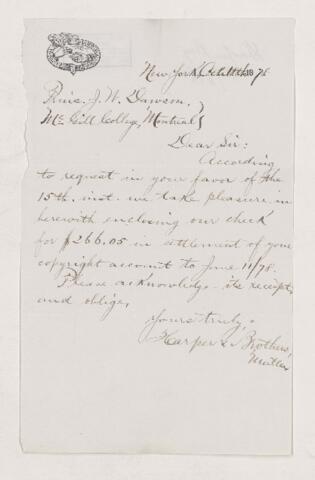 New York, Oct. 1878
Princ. J. W. Dawson,
McGill College, Montreal
Dear Sir:
According
to request in your favor of the
15th. inst. we take pleasure in
herewith enclosing our check
for $266.05 in settlement of your
copyright account to June 11/78.
Please acknowledge its receipt,
and oblige,
Yours truly,
Harper & Brothers,